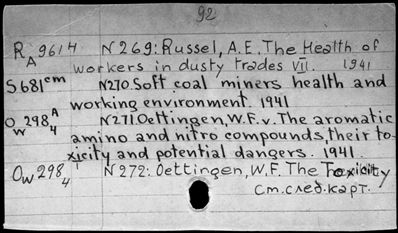 92
R A 9614 N269: Russel, A.E. The Health of
workers in dusty trades VII. 1941
S 681 cm N270. Soft coal miners health and
working environment. 1941
O w 298 A 4 N271. Oettingen, W.F.v. The aromatic
amino and nitro compounds, their to-
xicity and potential dangers. 1941.
O w 298 4 N272: Oettingen, W.F. The Toxicity
См. след. карт.